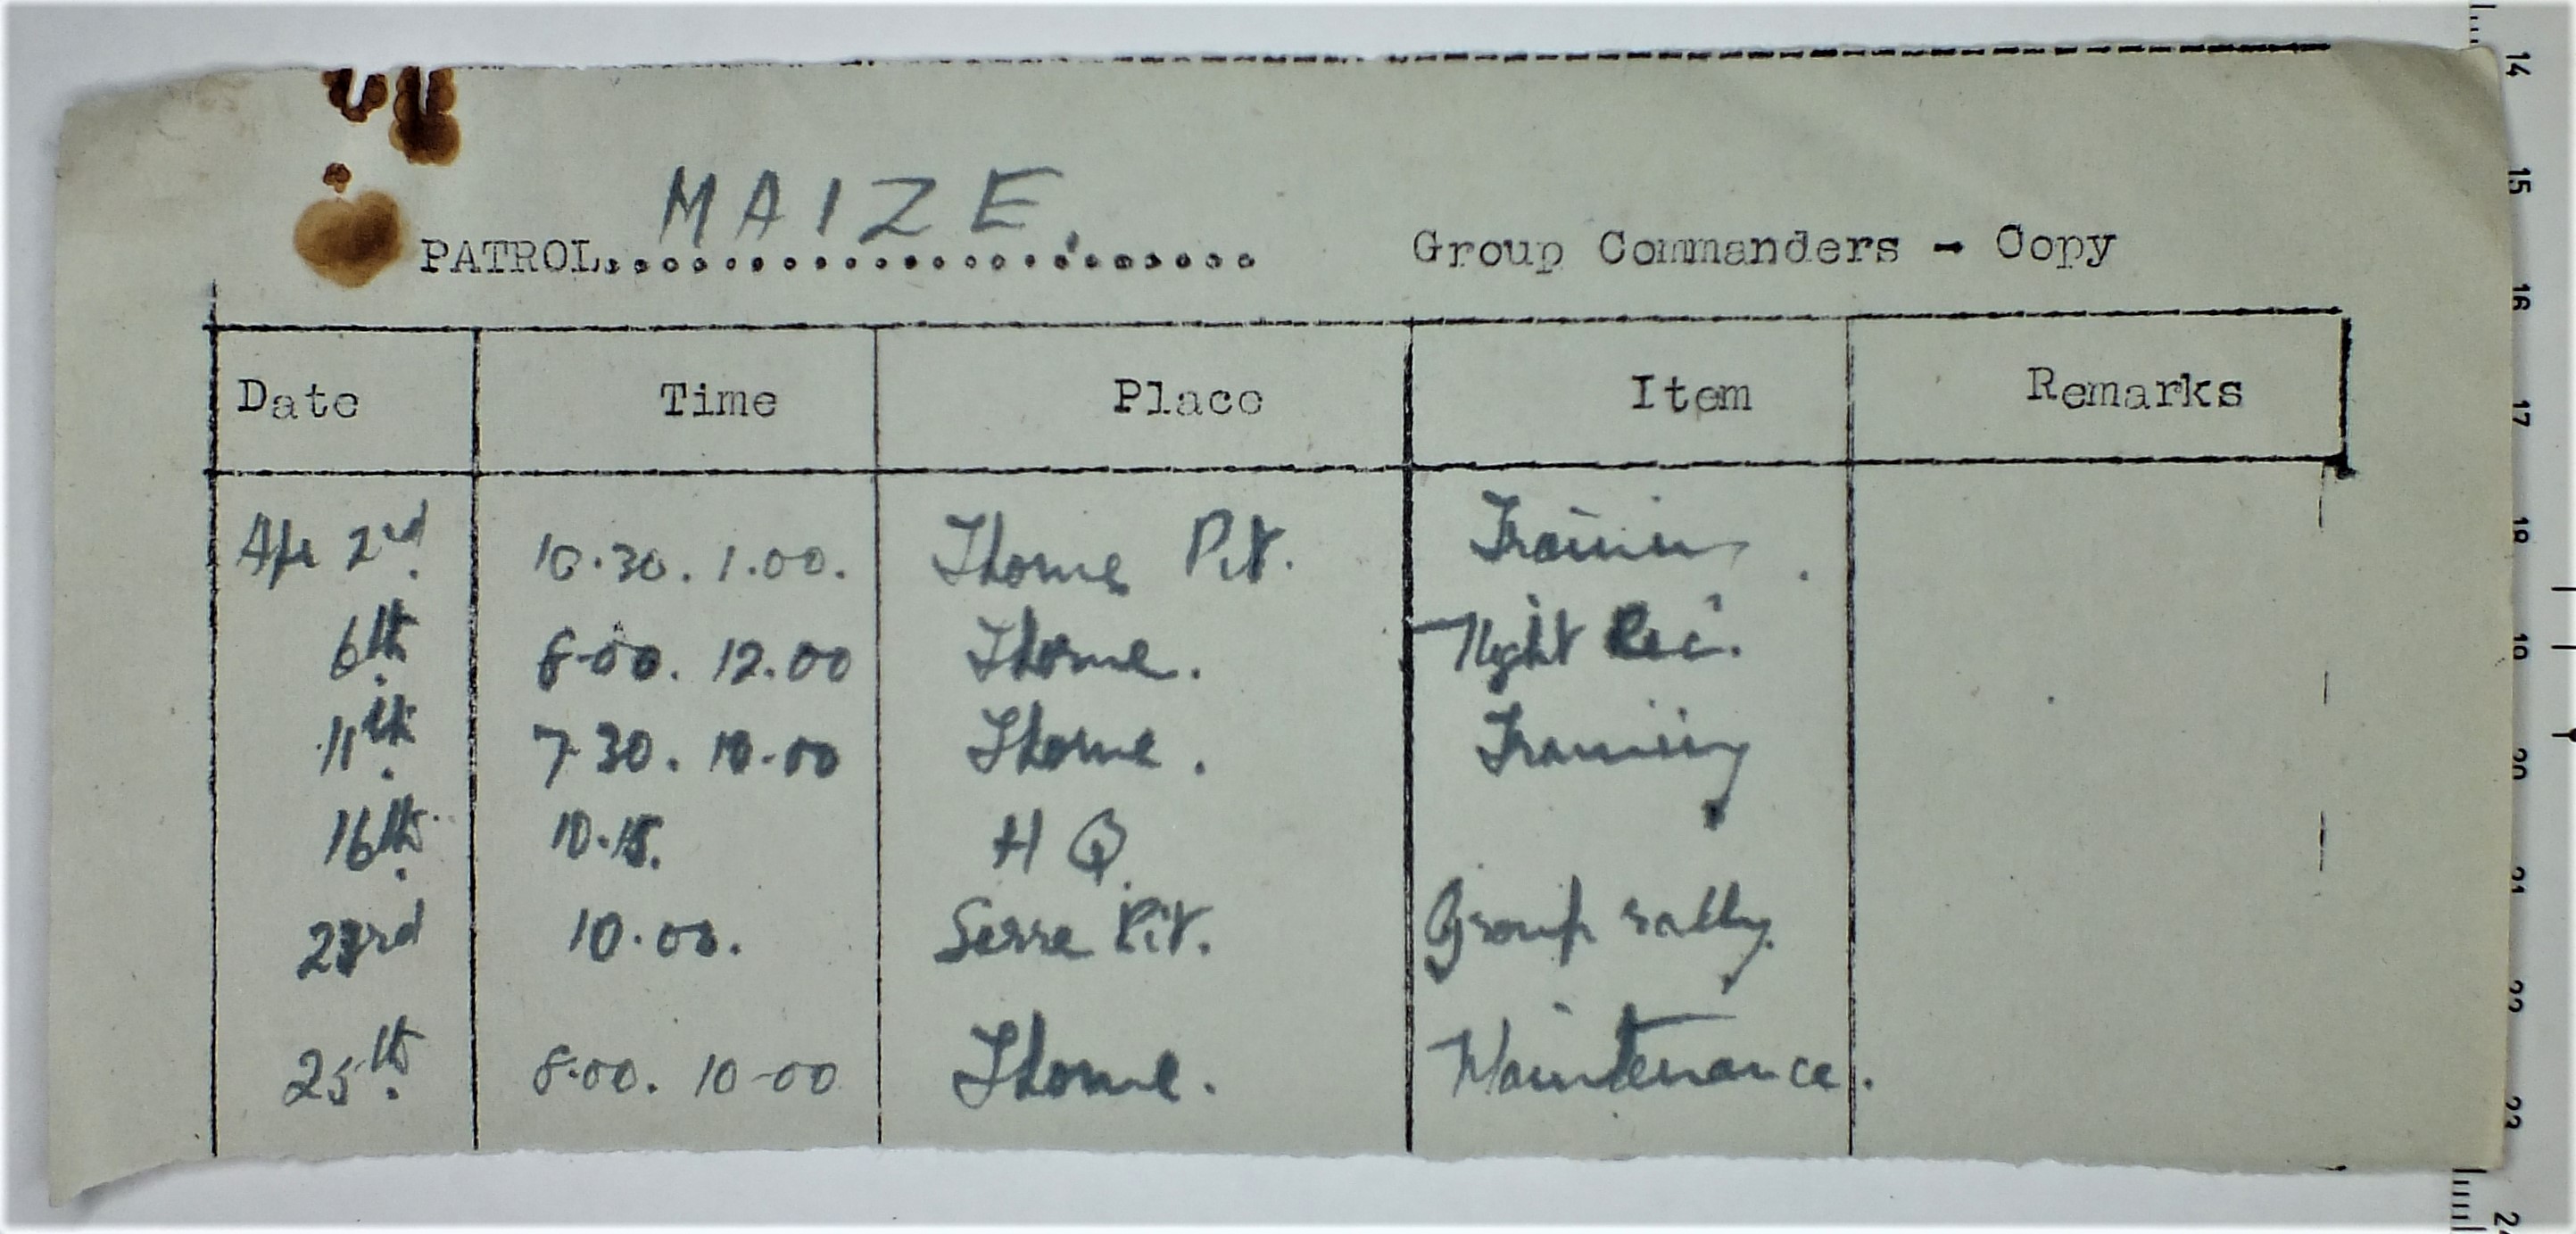 MAIZE.
PATROL........................ Group Commanders - Copy
Date Time Place Item Remarks
Apr 2nd 10.30. 1.00. Thorne Pit. Training.
6th 8-00. 12.00 Thorne. Night Rec.
11th 7-30. 10-00 Thorne. Training
16th 10.15. H Q.
23rd 10.00. Serre Pit. Group rally.
25th 8.00. 10-00 Thorne. Maintenance.
14
15
16
17
18
19
20
21
22
23